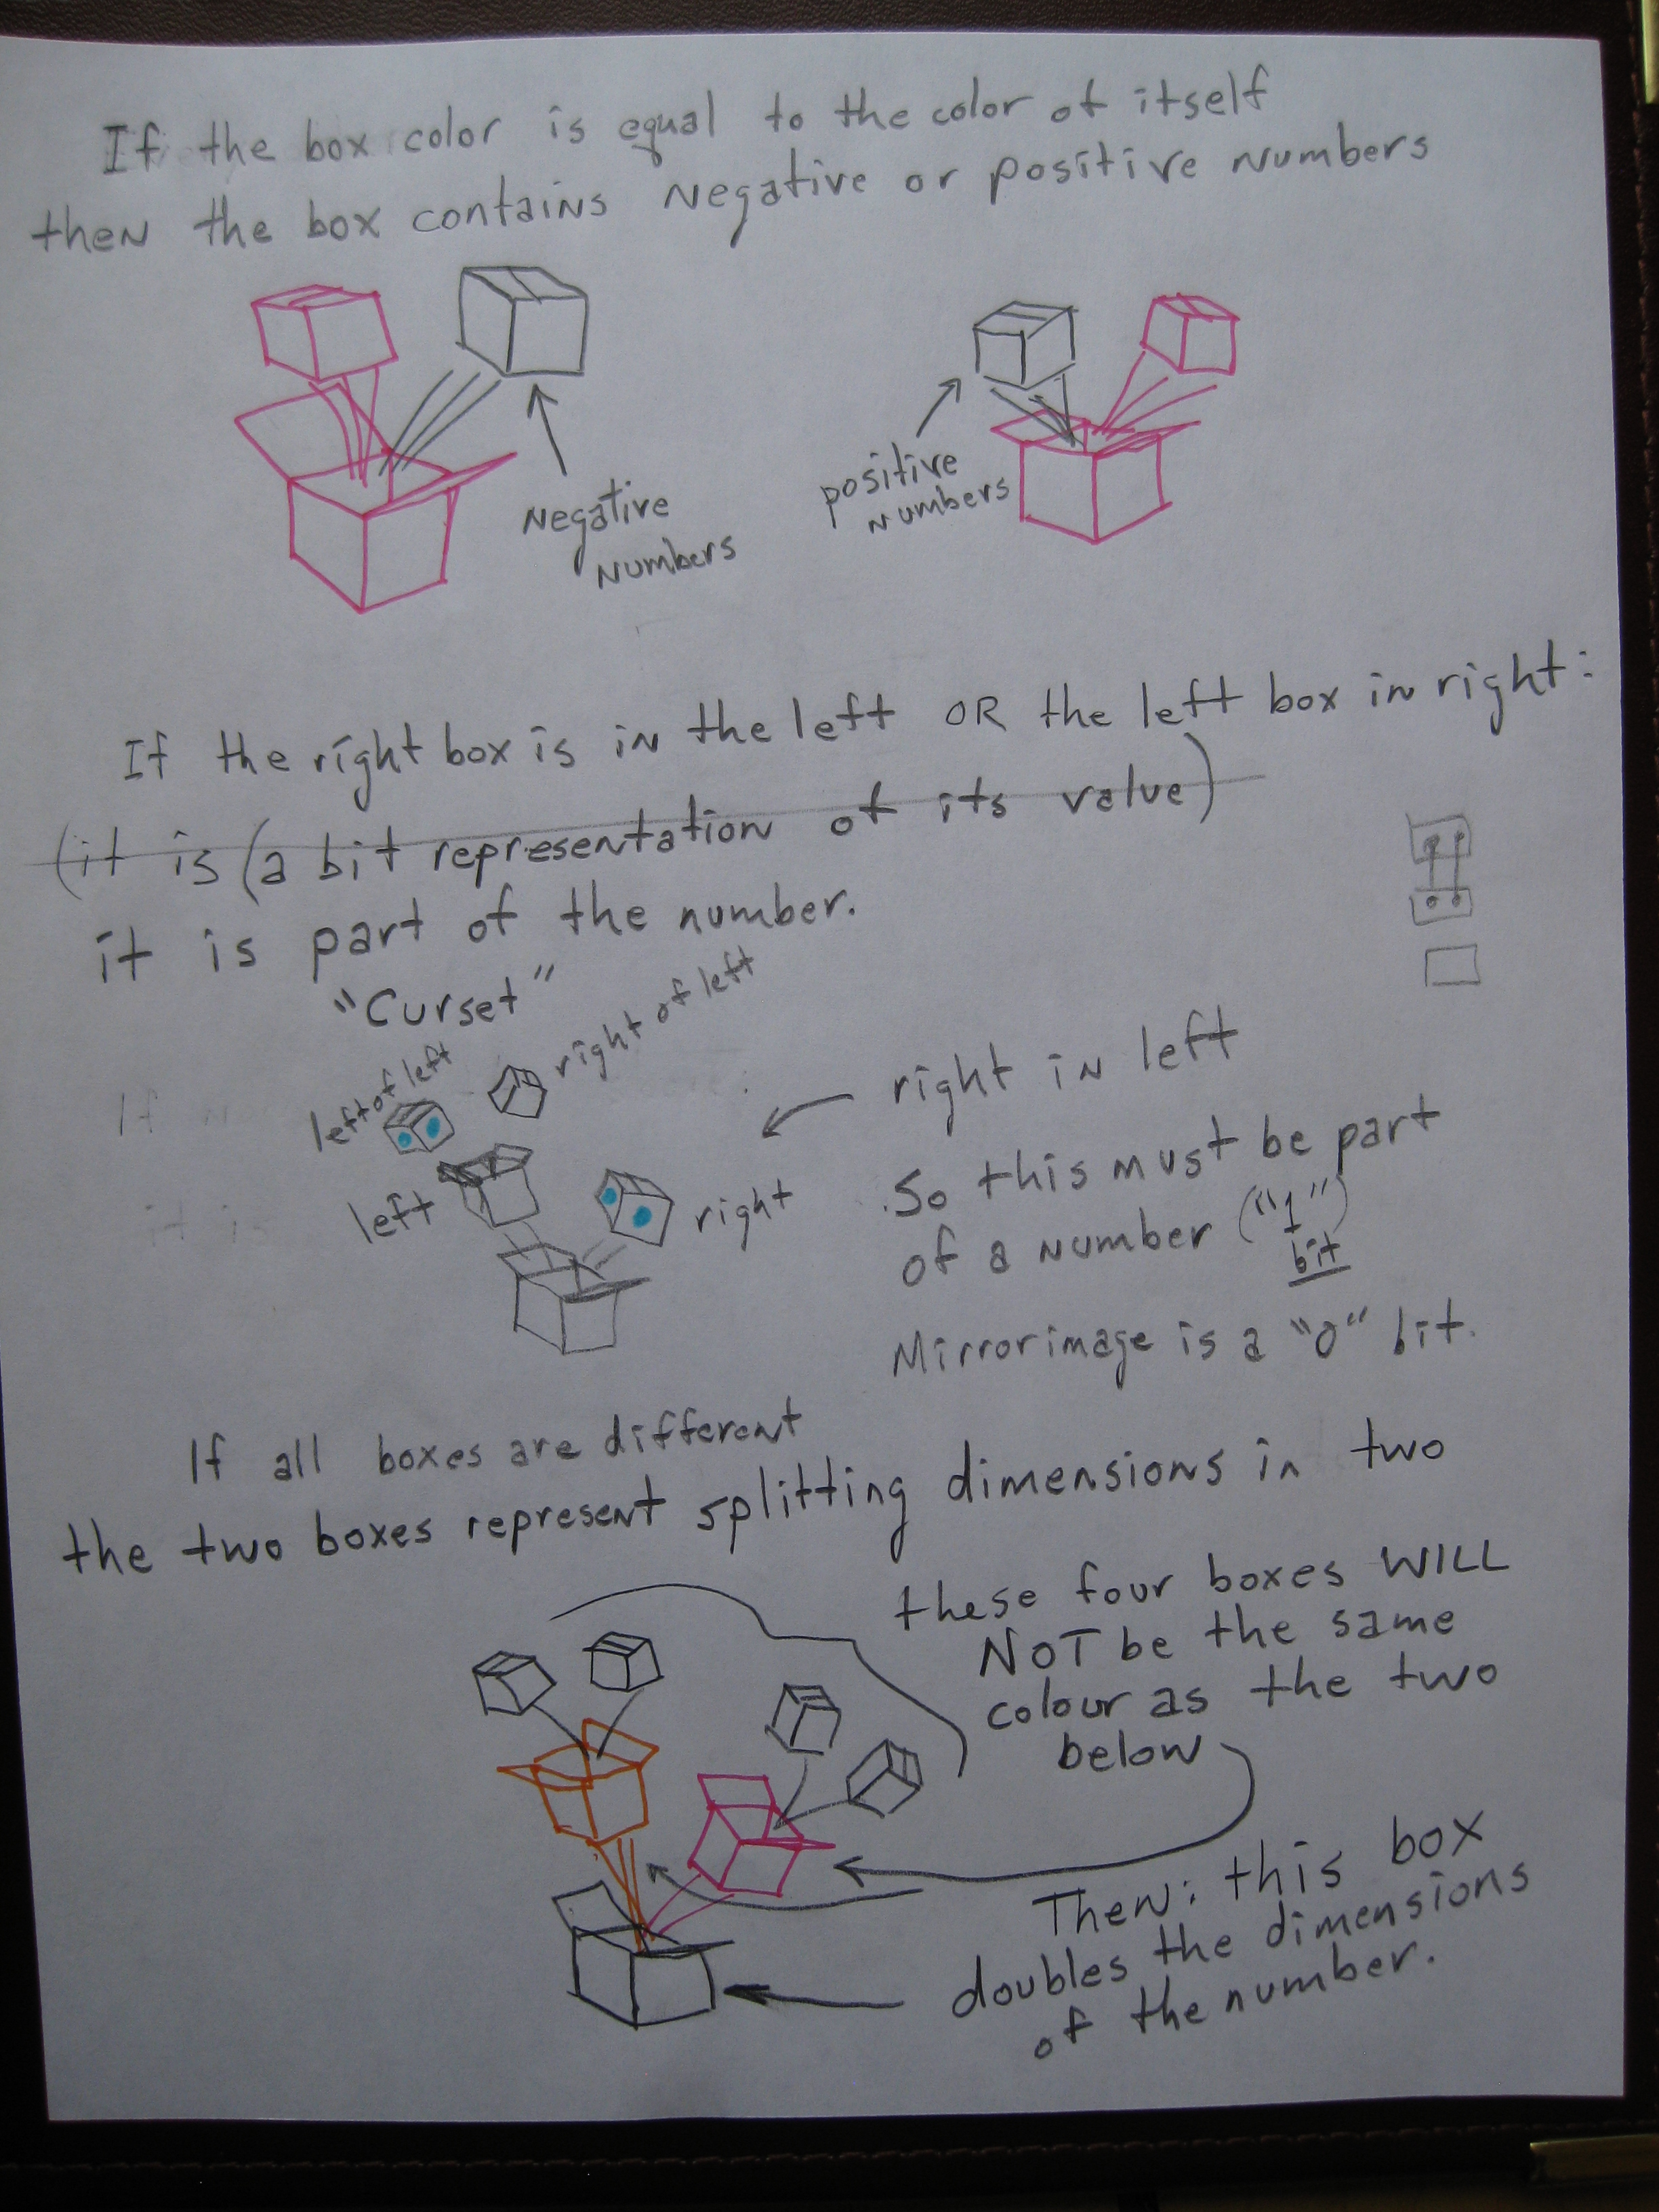 If the box color is equal to the color of itself
then the box contains negative or positive numbers
Negative
numbers
positive
numbers
If the right box is in the left OR the left box in right:
(it is (a bit representation of its value)
it is part of the number.
"Curset"
left of left
right of left
left
right
right in left
So this must be part
of a number ("1")
bit
Mirror image is a "0" bit.
If all boxes are different
the two boxes represent splitting dimensions in two
these four boxes WILL
NOT be the same
colour as the two
below
Then: this box
doubles the dimensions
of the number.